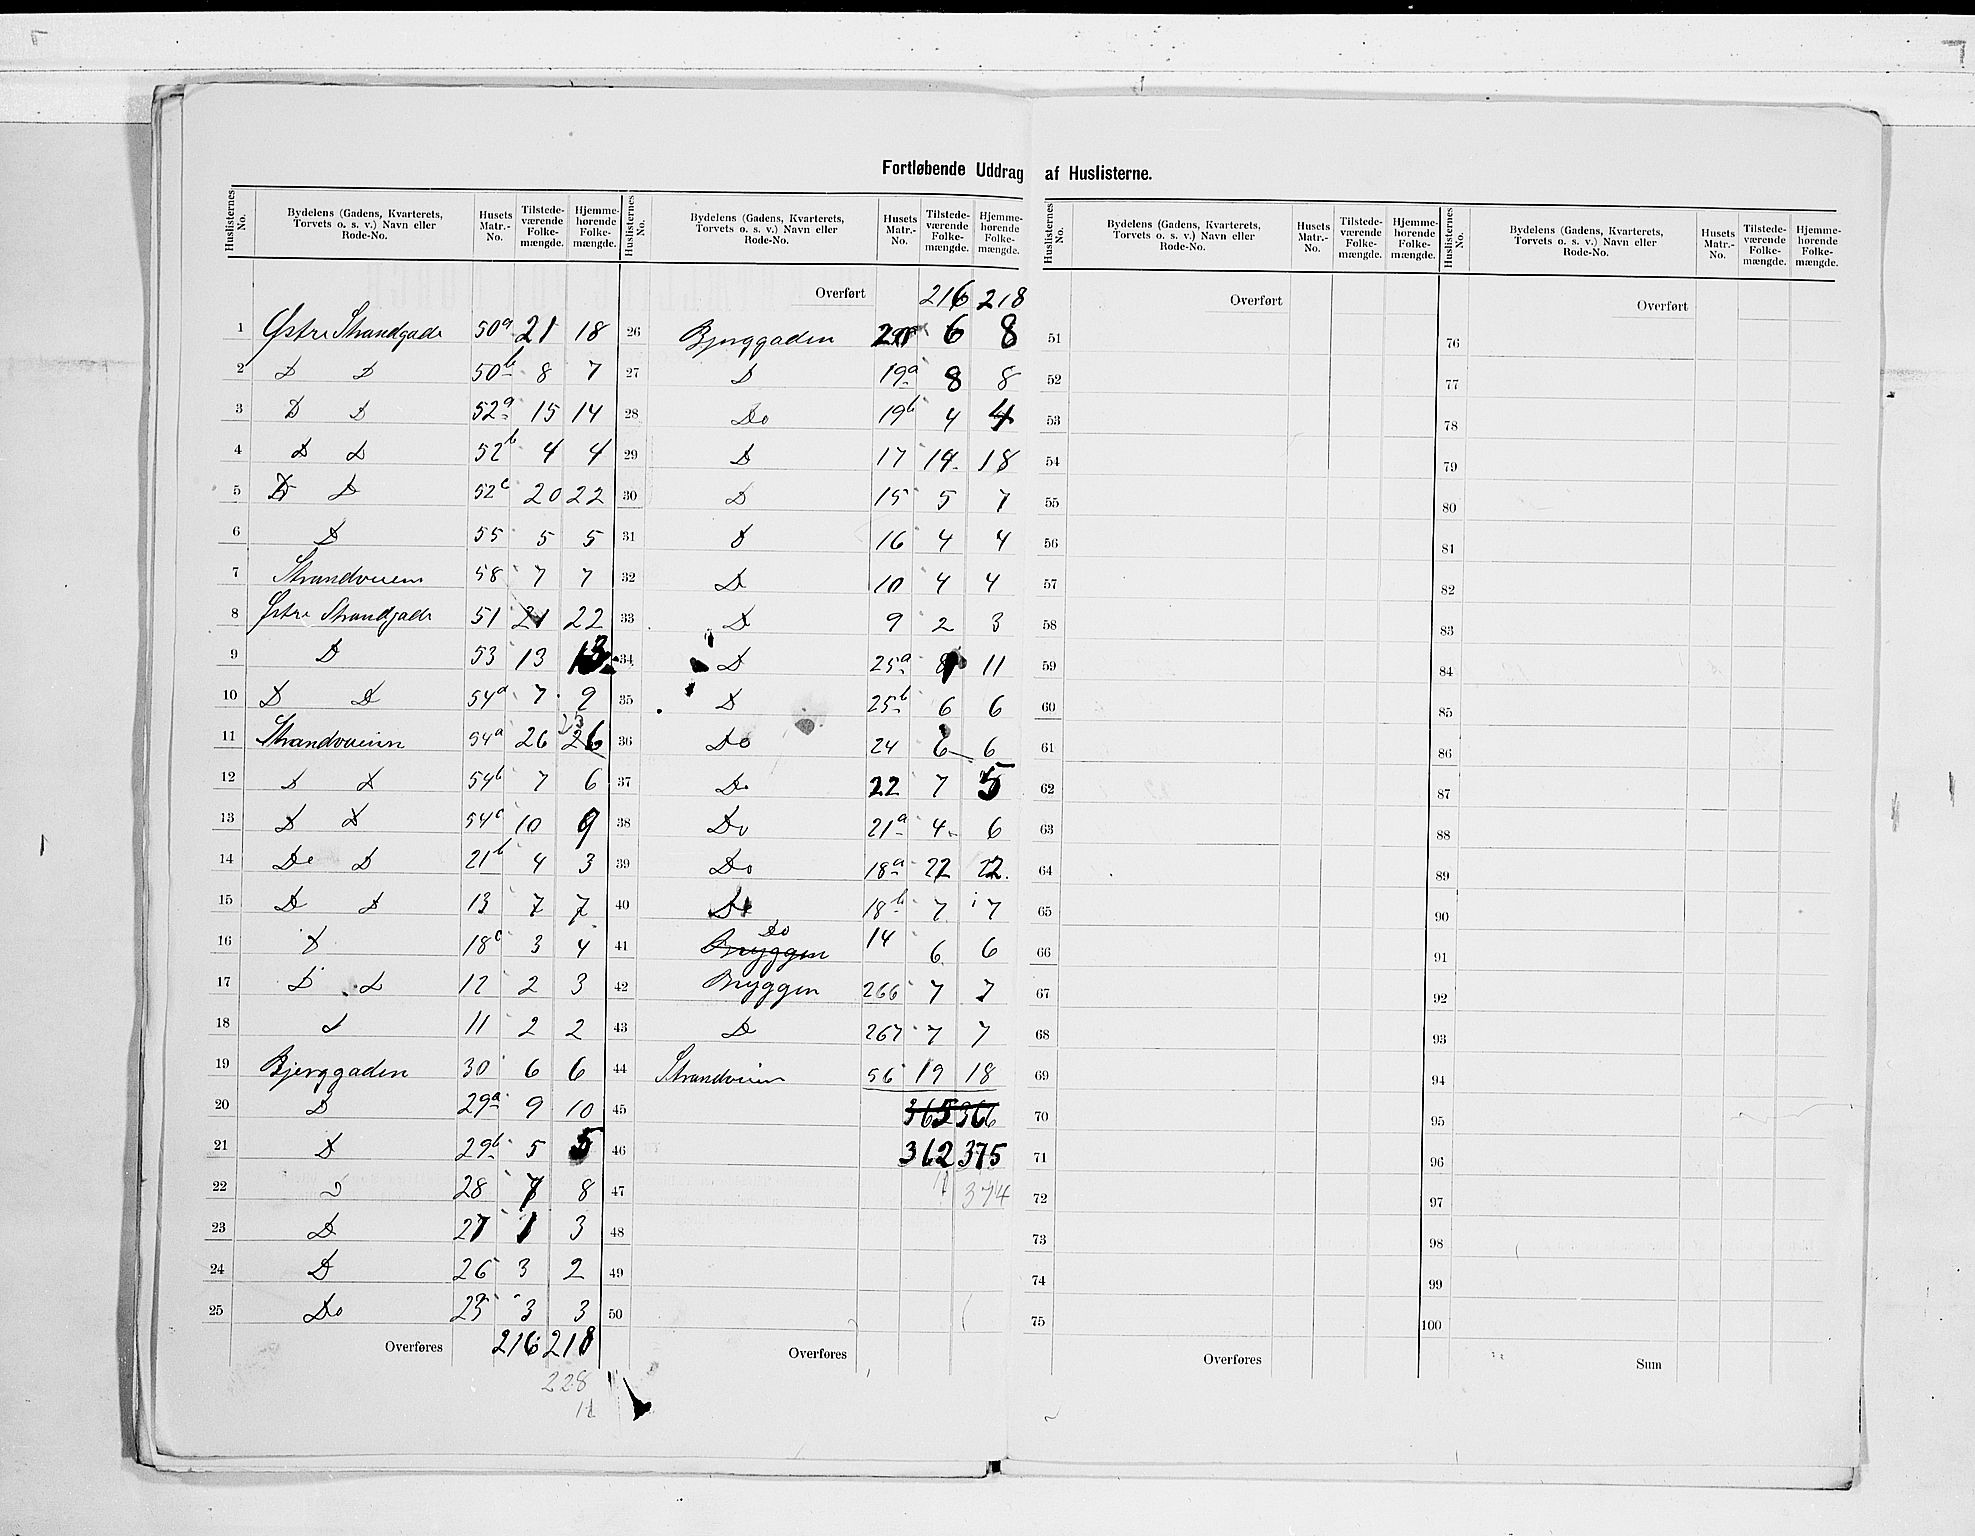 Fortløbende Uddrag af Huslisterne.
Huslisternes No. | Bydelens (Gadens, Kvarterets, Torvets o. s. v.) Navn eller Rode-No. | Husets Matr.-No. | Tilstede-værende Folke-mængde. | Hjemme-hørende Folke-mængde.
1 Østre Strandgade 50a 21 18
2 D D 50b 8 7
3 D D 52a 15 14
4 D D 52b 4 4
5 D D 52c 20 22
6 D 55 5 5
7 Strandveien 58 7 7
8 Østre Strandgade 51 21 22
9 D 53 13 13
10 D D 54a 7 9
11 Strandveien 54a 26 26
12 D D 54b 7 6
13 D D 54c 10 9
14 Do D 21b 4 3
15 D D 13 7 7
16 D 18c 3 4
17 D D 12 2 3
18 D 11 2 2
19 Bjerggaden 30 6 6
20 D 29a 9 10
21 D 29b 5 5
22 D 28 7 8
23 D 27 1 3
24 D 26 3 2
25 Do 3 3
Overføres 216 218
228
11
Huslisternes No. | Bydelens (Gadens, Kvarterets, Torvets o. s. v.) Navn eller Rode-No. | Husets Matr.-No. | Tilstede-værende Folke-mængde. | Hjemme-hørende Folke-mængde.
Overført 216 218
26 Bjerggaden 6 8
27 D 19a 8 8
28 Do 19b 4 4
29 D 17 14 18
30 D 15 5 7
31 D 16 4 4
32 D 10 4 4
33 D 9 2 3
34 D 25a 11
35 D 25b 6 6
36 Do 24 6 6
37 Do 22 7 5
38 Do 21a 4 6
39 Do 18a 22 22
40 Do 18b 7 7
Do
41 Bryggen 14 6 6
42 Bryggen 266 7 7
43 D 267 7 7
44 Strandveien 56 19 18
45 365 366
46 362 375
47 11 374
48
49
50
Overføres
Huslisternes No. | Bydelens (Gadens, Kvarterets, Torvets o. s. v.) Navn eller Rode-No. | Husets Matr.-No. | Tilstede-værende Folke-mængde. | Hjemme-hørende Folke-mængde.
Overført
51
52
53
54
55
56
57
58
59
60
61
62
63
64
65
66
67
68
69
70
71
72
73
74
75
Overføres
Huslisternes No. | Bydelens (Gadens, Kvarterets, Torvets o. s. v.) Navn eller Rode-No. | Husets Matr.-No. | Tilstede-værende Folke-mængde. | Hjemme-hørende Folke-mængde.
Overført
76
77
78
79
80
81
82
83
84
85
86
87
88
89
90
91
92
93
94
95
96
97
98
99
100
Sum